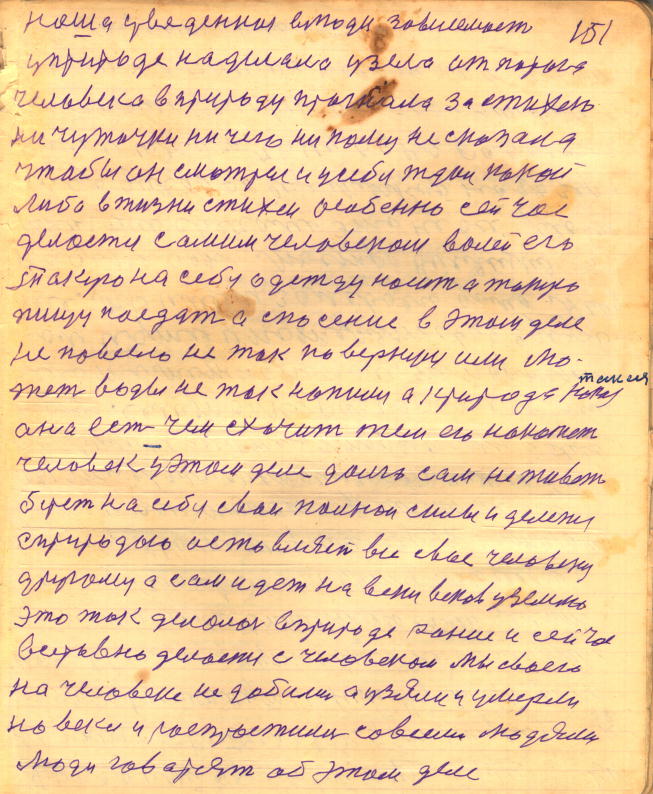 наша сведенная в люди зависемост 151
у природе наделала узела от порога
человека в природу прогнала за стихею
ни чуточки ничего ни кому не сказала
чтобы он смотрел и у себи ждал покой
либо в жизни стихеи особенно сейчас
делости самим человеком волей его
такую на себу одежду ноит а такую
пищу поедят а спосение в этом деле
не повезло не так повернул или мо-
жет воды не так напили а природа такая
она ест чем схочит тем его накажет
человек у этом деле долго сам не живеть
берет на себу сваи полнои силы и дележи
с природою оставляет все свае человеку
другому а сам идет на веки веков у землю
это так делолос в природе ранше и сейчас
всеравно делости с человеком мы своего
на человеке не добили а узяли и умерли
на веки и роспростилис совсем людями
люди говарят об этом деле